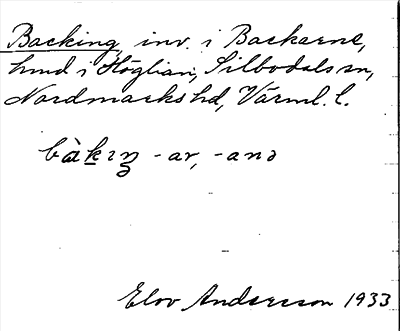 Backing, inv. i Backarne,
hmd i Höglian, Silbodals sn,
Nordmarks hd, Värml. l.
bàkıŋ -ar, -anə
Elov Andersson 1933